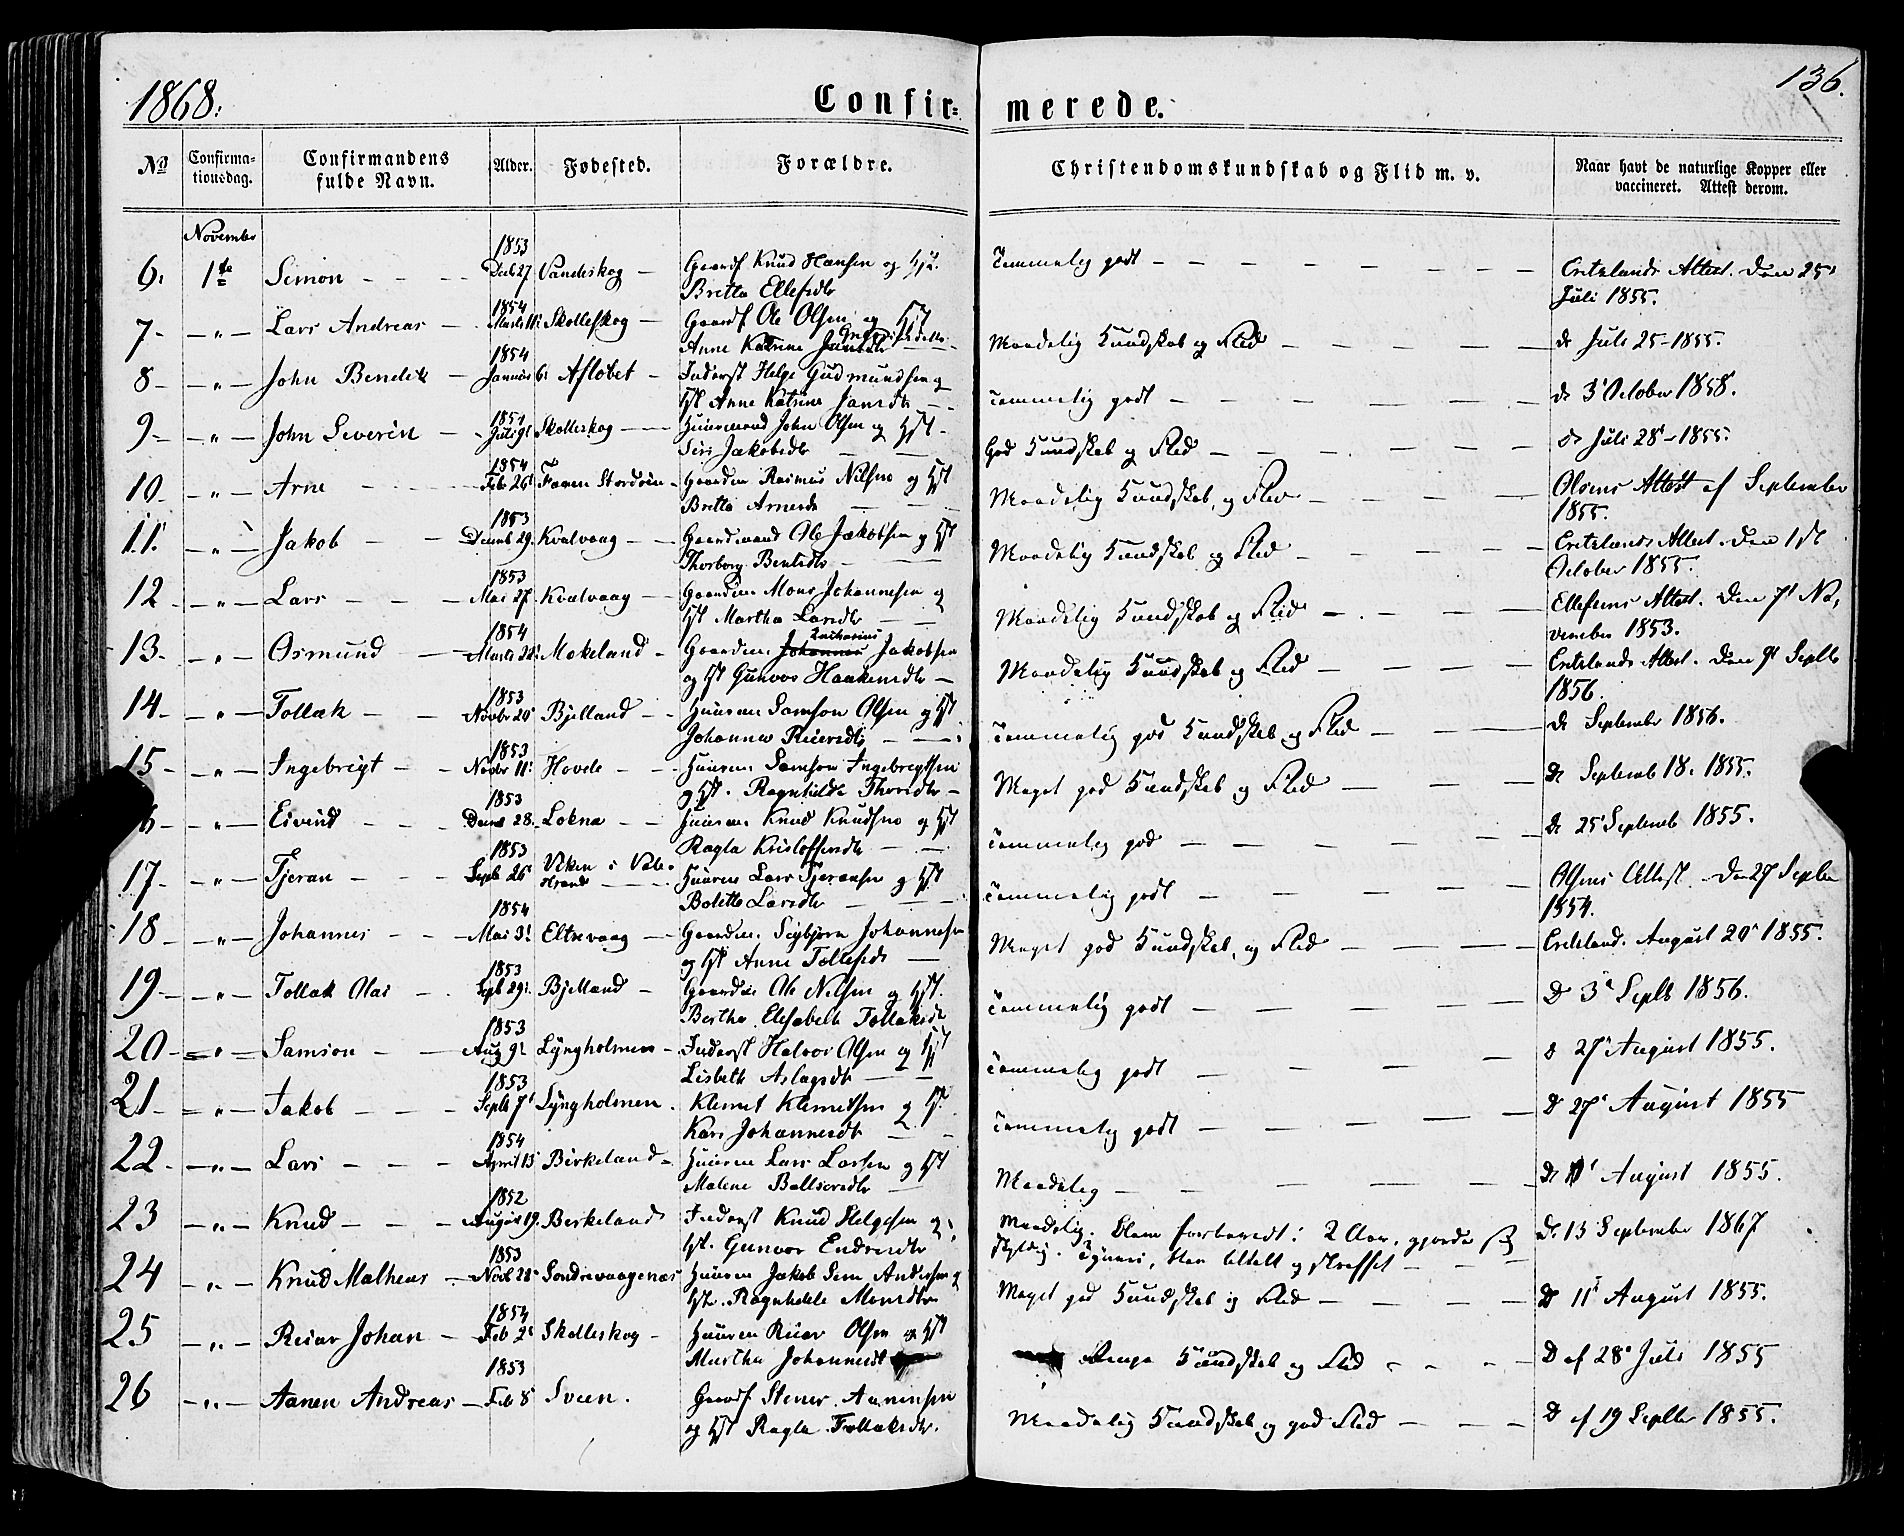 1868.
Confir= merede.
136.
No
Confirma-
tionsdag.
Confirmandens
fulde Navn.
Alder.
Fødested.
Forældre.
Christendomskundskab og Flid m. v.
Naar havt de naturlige Kopper eller
vaccineret. Attest derom.
November
1853
6. 1ste Simon - - - Decb 27 Vandeskog - Gaardf Knud Hansen og Hst. Temmelig godt - - - Attest. Den 25'
Britta Ellefsdtr Juli 1855.
1854
7- -"- Lars Andreas - Marts 11 Skolleskog - Gaardf Ole Olsen og Hst Maadelig Kundskab og Flid - - - do Juli 25-1855.
Anne Katrine
1854
8- -"- John Bendik - Januar 6 Afløbet - Inderst Helge Gudmundsen og Temmelig godt - - - do 3' October 1858.
Hst Anne Katrine Jansdtr - -
1854
9- -"- John Severin - Juli 9' Skolleskog - Huusmand John Olsen og Hst - God Kundskab og Flid - - - do Juli 28'-1855.
Siri Jakobsdtr - -
1854
10- -"- Arne - - Feb 26' Gaardm Rasmus Nilsen og Hst Maadelig Kundskab, og Flid - - - Olsens Attest af September
Britta Arnesdtr - - 1855.
1853
11. -"- Jakob - - Decemb 29. Kvalvaag - - Gaardmand Ole Jakobsen og Hst Maadelig Kundskab og Flid - - - Attest. Den 1ste
Thorborg Bentsdtr - - October 1855.
1853
12- -"- Lars - - - Mai 27. Kvalvaag - - Gaardm Mons Johannesen og Maadelig Kundskab og Flid - - - Ellefsens Attest. Den 7' No,
Hst Martha Larsdtr - - vember 1853.
1854
Zacharias
13- -"- Osmund - - Marts 22 Mokeland - Gaardm. Johannes Jakobsen Maadelig Kundskab og Flid - - - Attest. Den 9' Septbr
og Hst Gunvor Haakensdtr - 1856.
1853
14- -"- Tollak - - Novbr 20' Bjelland - - Huusm Samson Olsen og Hst Temmelig god Kundskab og Flid - - - do September 1856.
Johanne Reiersdtr - -
1853
15- -"- Ingebrigt - - Novbr 11' Hovde - - Huusm Samson Ingebrigtsen Meget god Kundskab og Flid - - - do Septemb 18. 1855.
og Hst. Ragnhilde Thorsdtr -
1853
6 -"- Eivind - - - Decb 28. Lokna - - Huusm Knud Knudsen og Hst Temmelig god - - - do 25' Septemb 1855.
Ragla Kristoffersdtr - -
1853
17- -"- Tjeran - - - Septb 26' Viken i Huusm Lars Tjeransen og Hst Temmelig godt - - - Olsens Attest. Den 27 Septbr
Bolette Larsdtr - - 1854.
1854
18 -"- Johannes - - - Mai 3' Eltrevaag - - Gaardm. Sigbjørn Johannesen Meget god Kundskab, og Flid - - - August 20' 1855.
og Hst Anne Tollefsdtr -
1853
19- -"- Tollak Olai - . Septb 29'. Bjelland - Gaardm Ole Nilsen og Hst. Temmelig godt - - - D 3' Septb 1856.
Bertha Elisabeth Tollaksdtr
1853
20- -"- Samson - - Aug 9' Lyngholmen - Inderst Halvor Olsen og Hst Temmelig godt - - - D 27' August 1855.
Lisbeth Aslagsdtr - -
1853
21- -"- Jakob - - - Septb 7' Lyngholmen. Klemet Klemetsen og Hst. Temmelig godt - - - D 27' August 1855
Kari Johannesdtr - -
1854
22- -"- Lars - - - April 13' Birkeland - Huusm Lars Larsen og Hst Maadelig - - - do August 1855.
Malene Baltsersdtr -
1852
23 -"- Knud - - - August 19. Birkeland Inderst Knud Helgesen og Maadelig. Blev forberedt i 2 Aar, gjorde sig do 13 September 1867
Hst. Gunvor Endresdtr skyldig i Tyveri, blev tiltalt og straffet - - -
1853
24 -"- Knud Matheas - Novb 28' Søndrevaagenæs Huusm Jakob Sem Andersen og Meget god Kundskab og Flid - - - D 11' August 1855.
Hst. Ragnhilde Monsdtr
1854
25 -"- Reiar Johan - Feb 2' Skolleskog - Huusm Reiar Olsen og Hst Kundskab og Flid - - - D af 28' Juli 1855
Martha Johannesdtr
1853
26 -"- Aanen Andreas - Feb 8' Sveen. Gaardf Stener Aanensen Maadelig Kundskab og god Flid - - - D af 19 Septbr 1855.
og Hst Ragla Tollaksdtr.